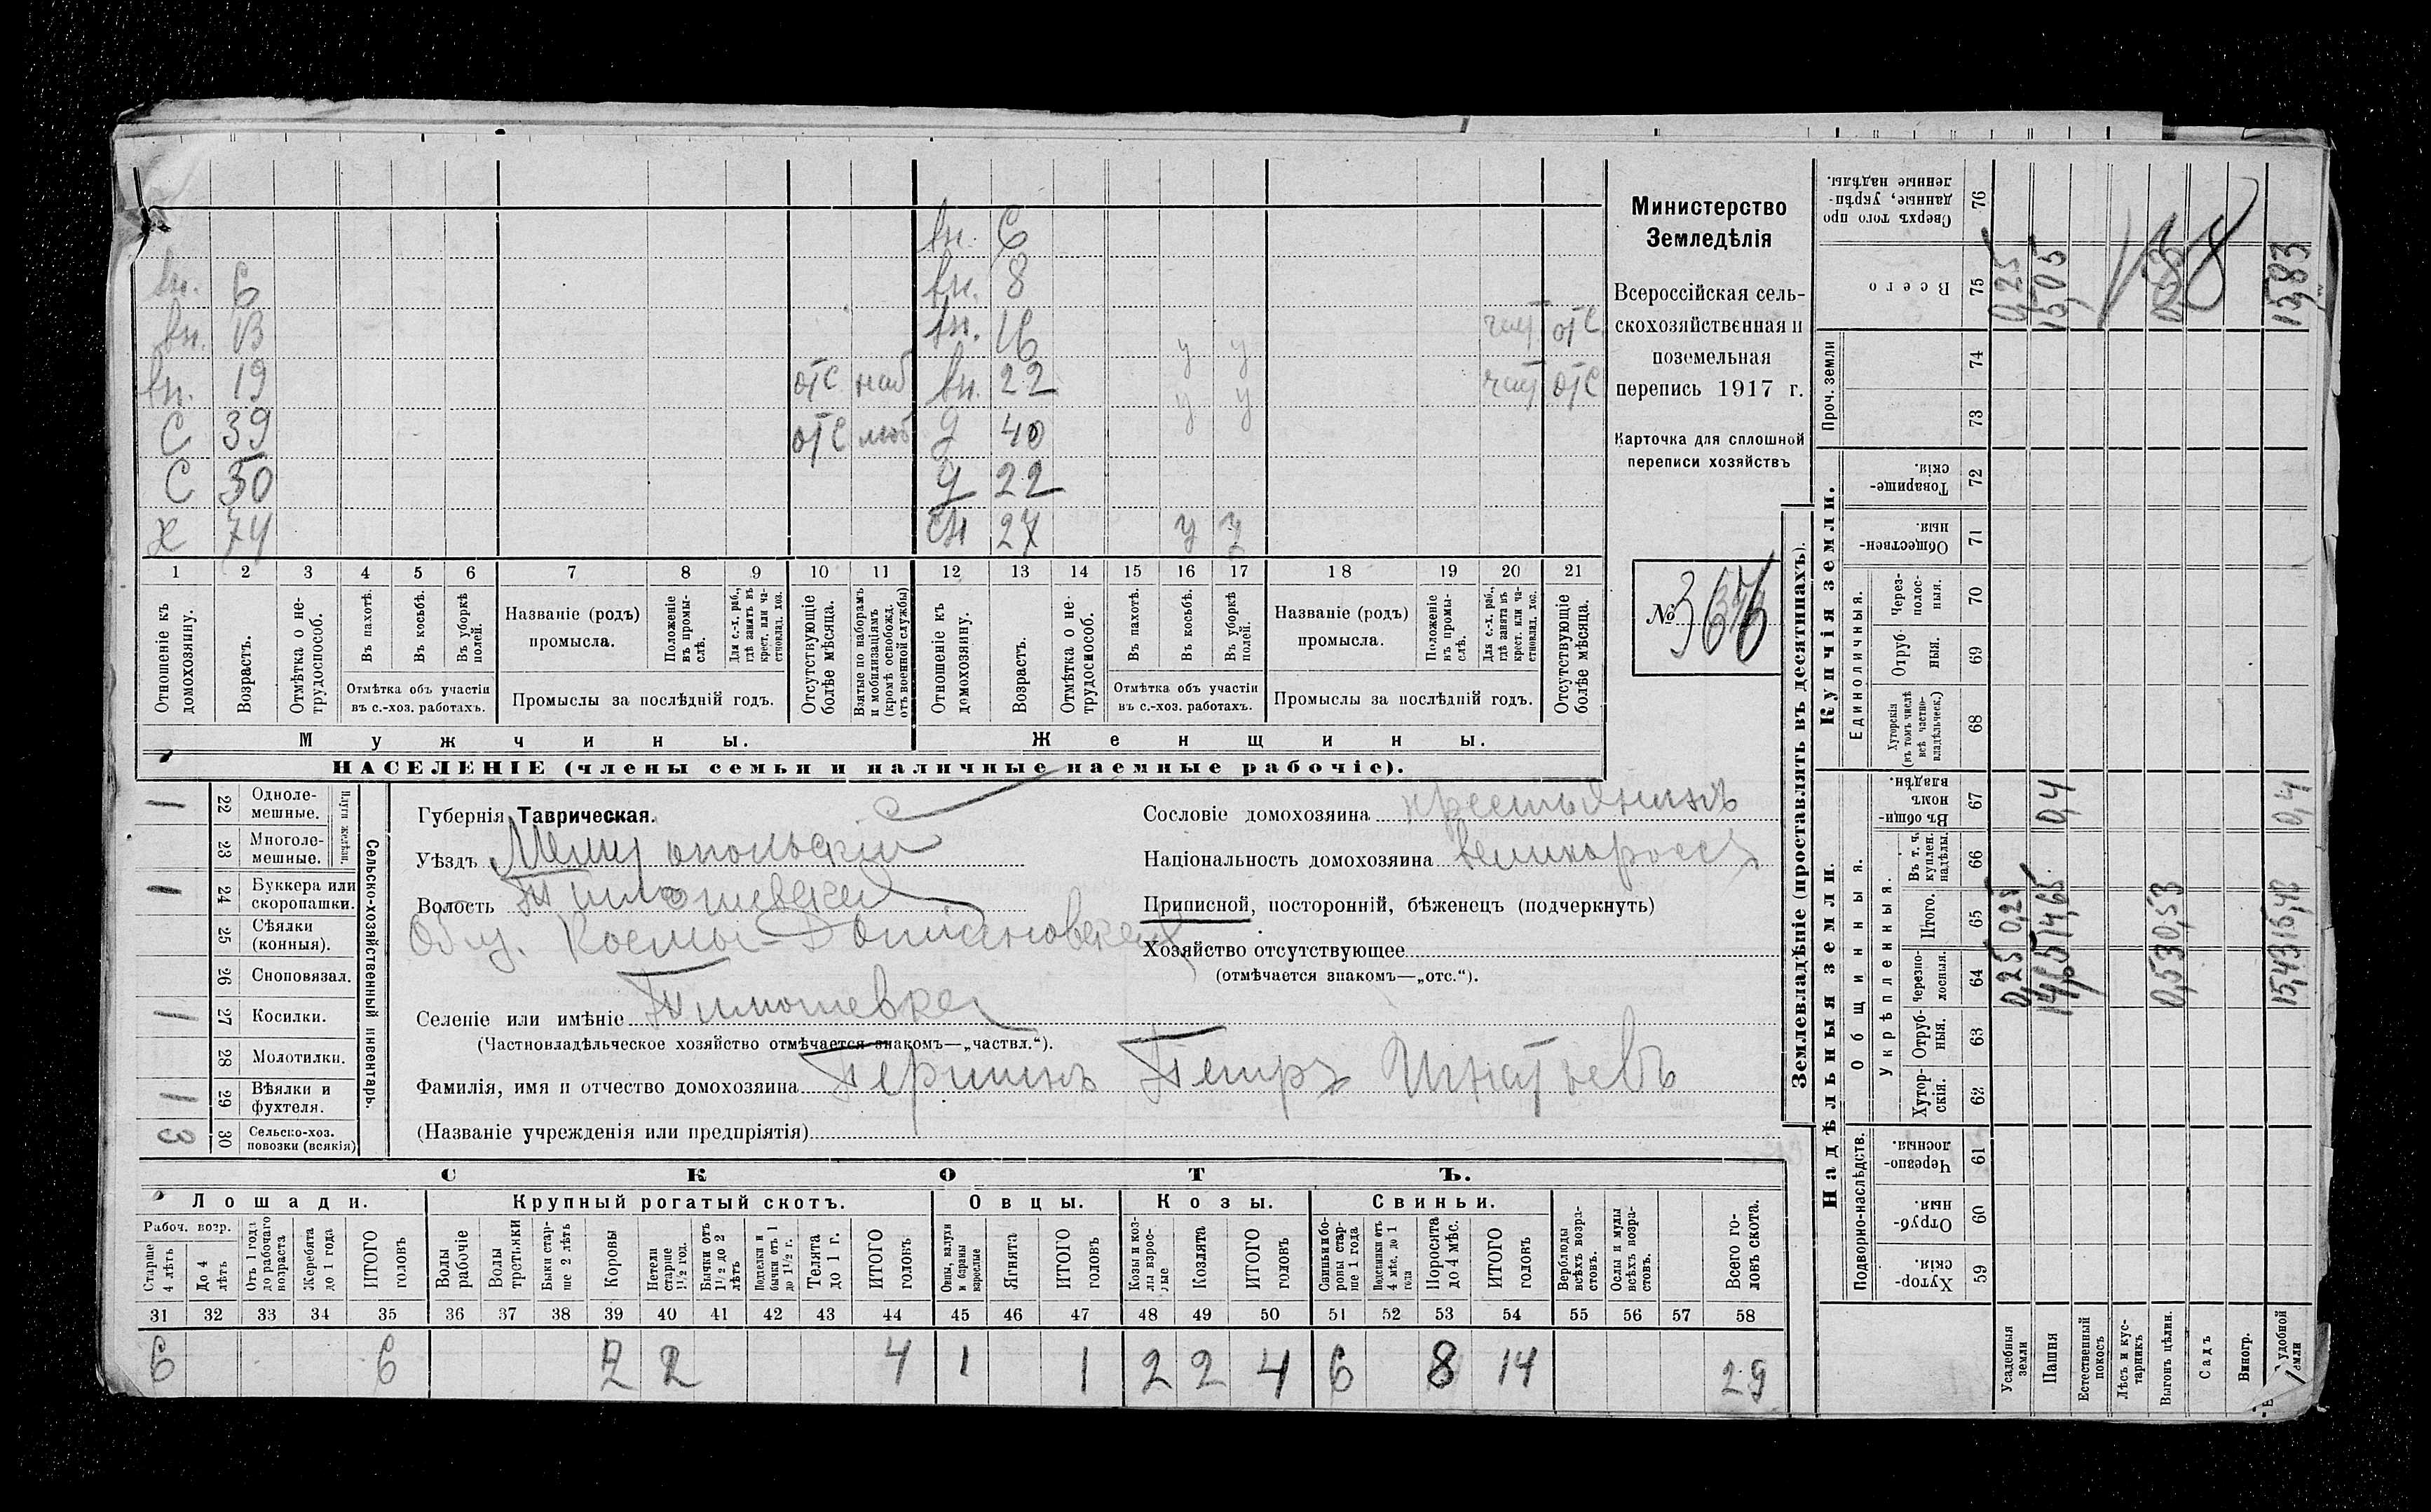 вн. 6
вн. 6 вн. 8
вн. 13 вн. 16 отс
вн. 19 отс наб вн. 22 отс
С 39 отс моб д 40
С 30 д 22
х 74 сн 27 у у
1 2 3 4 5 6 7 8 9 10 11 12 13 14 15 16 17 18 19 20 21
Отношеніе къ домохозяину.
Возрастъ.
Отмѣтка о нетрудоспособ.
Въ пахотѣ.
Въ косьбѣ.
Въ уборкѣ полей.
Отмѣтка объ участіи въ с.-хоз. работахъ.
Названіе (родъ) промысла.
Положеніе въ промыслѣ.
Для с.-х. раб., гдѣ занятъ въ крест. или частновлад. хоз.
Промыслы за послѣдній годъ.
Отсутствующіе болѣе мѣсяца.
Взятые по наборамъ и мобилизаціямъ (кромѣ освобожд. отъ военной службы)
Отношеніе къ домохозяину.
Возрастъ.
Отмѣтка о нетрудоспособ.
Въ пахотѣ.
Въ косьбѣ.
Въ уборкѣ полей.
Отмѣтка объ участіи въ с.-хоз. работахъ.
Названіе (родъ) промысла.
Положеніе въ промыслѣ.
Для с.-х. раб., гдѣ занята въ крест. или частновлад. хоз.
Промыслы за послѣдній годъ.
Отсутствующіе болѣе мѣсяца.
Мужчины. Женщины.
НАСЕЛЕНІЕ (члены семьи и наличные наемные рабочіе).
Министерство
Земледѣлія
Всероссійская сель-
скохозяйственная и
поземельная
перепись 1917 г.
Карточка для сплошной
переписи хозяйствъ
№ 366
Сельско-хозяйственный инвентарь.
Плуги желѣзн.
1 22 Однолемешные.
23 Многолемешные.
1 24 Буккера или скоропашки.
25 Сѣялки (конныя).
26 Сноповязал.
1 27 Косилки.
28 Молотилки.
1 29 Вѣялки и фухтеля.
3 30 Сельско-хоз. повозки (всякія)
Губернія Таврическая.
Уѣздъ Мелитопольскій
Волость Тимошевская
Общ. Космы-Доміановская
Селеніе или имѣніе Тимошевка
(Частновладѣльческое хозяйство отмѣчается знакомъ—„частвл.“).
Фамилія, имя и отчество домохозяина Першинъ Петръ Игнатьевъ
(Названіе учрежденія или предпріятія)
Сословіе домохозяина крестьянинъ
Національность домохозяина великороссъ
Приписной, посторонній, бѣженецъ (подчеркнуть)
Хозяйство отсутствующее
(отмѣчается знакомъ—„отс.“).
СКОТЪ.
Лошади. Крупный рогатый скотъ. Овцы. Козы. Свиньи.
Рабоч. возр.
Старше 4 лѣтъ
До 4 лѣтъ
Отъ 1 года до рабочаго возраста
Жеребята до 1 года
ИТОГО головъ
Волы рабочіе
Волы третьяки
Быки старше 2 лѣтъ
Коровы
Нетели старше 1½ год.
Бычки отъ 1½ до 2 лѣтъ
Подтелки и бычки отъ 1 до 1½ г.
Телята до 1 г.
ИТОГО головъ
Овцы, валухи и бараны взрослые
Ягнята
ИТОГО головъ
Козы и козлы взрослые
Козлята
ИТОГО головъ
Свиньи и боровы старше 1 года
Подсвинки отъ 4 мѣс. до 1 года
Поросята до 4 мѣс.
ИТОГО головъ
Верблюды всѣхъ возрастовъ.
Ослы и мулы всѣхъ возрастовъ.
Всего головъ скота.
31 32 33 34 35 36 37 38 39 40 41 42 43 44 45 46 47 48 49 50 51 52 53 54 55 56 57 58
6 6 2 2 4 1 1 2 2 4 6 8 14 29
Землевладѣніе (проставлять въ десятинахъ).
Надѣльныя земли. Купчія земли.
Проч. земли
Подворно-наслѣдств.
Общинныя.
Укрѣпленныя.
Единоличныя.
Хуторскія. 59
Отрубныя 60
Черезполосныя. 61
Хуторскія. 62
Отрубныя. 63
Черезполосныя. 64
Итого. 65
Въ т. ч. куплен. надѣлы. 66
Въ общинномъ владѣн. 67
Хуторскія (въ томъ числѣ всѣ частновладѣльческ.) 68
Отрубныя. 69
Черезполосныя. 70
Общественныя 71
Товарищескія. 72
73
74
Всего 75
Сверхъ того проданные, укрѣпленные надѣлы. 76
Усадебныя земли 0,25 0,25 0,25
Пашня 14,65 14,65 0,4 15,05
Естественный покосъ
Лѣсъ и кустарникъ
Выгонъ цѣлин. 0,53 0,53
Садъ
Виногр.
удобной земли 15,43 15,43 0,4 15,83